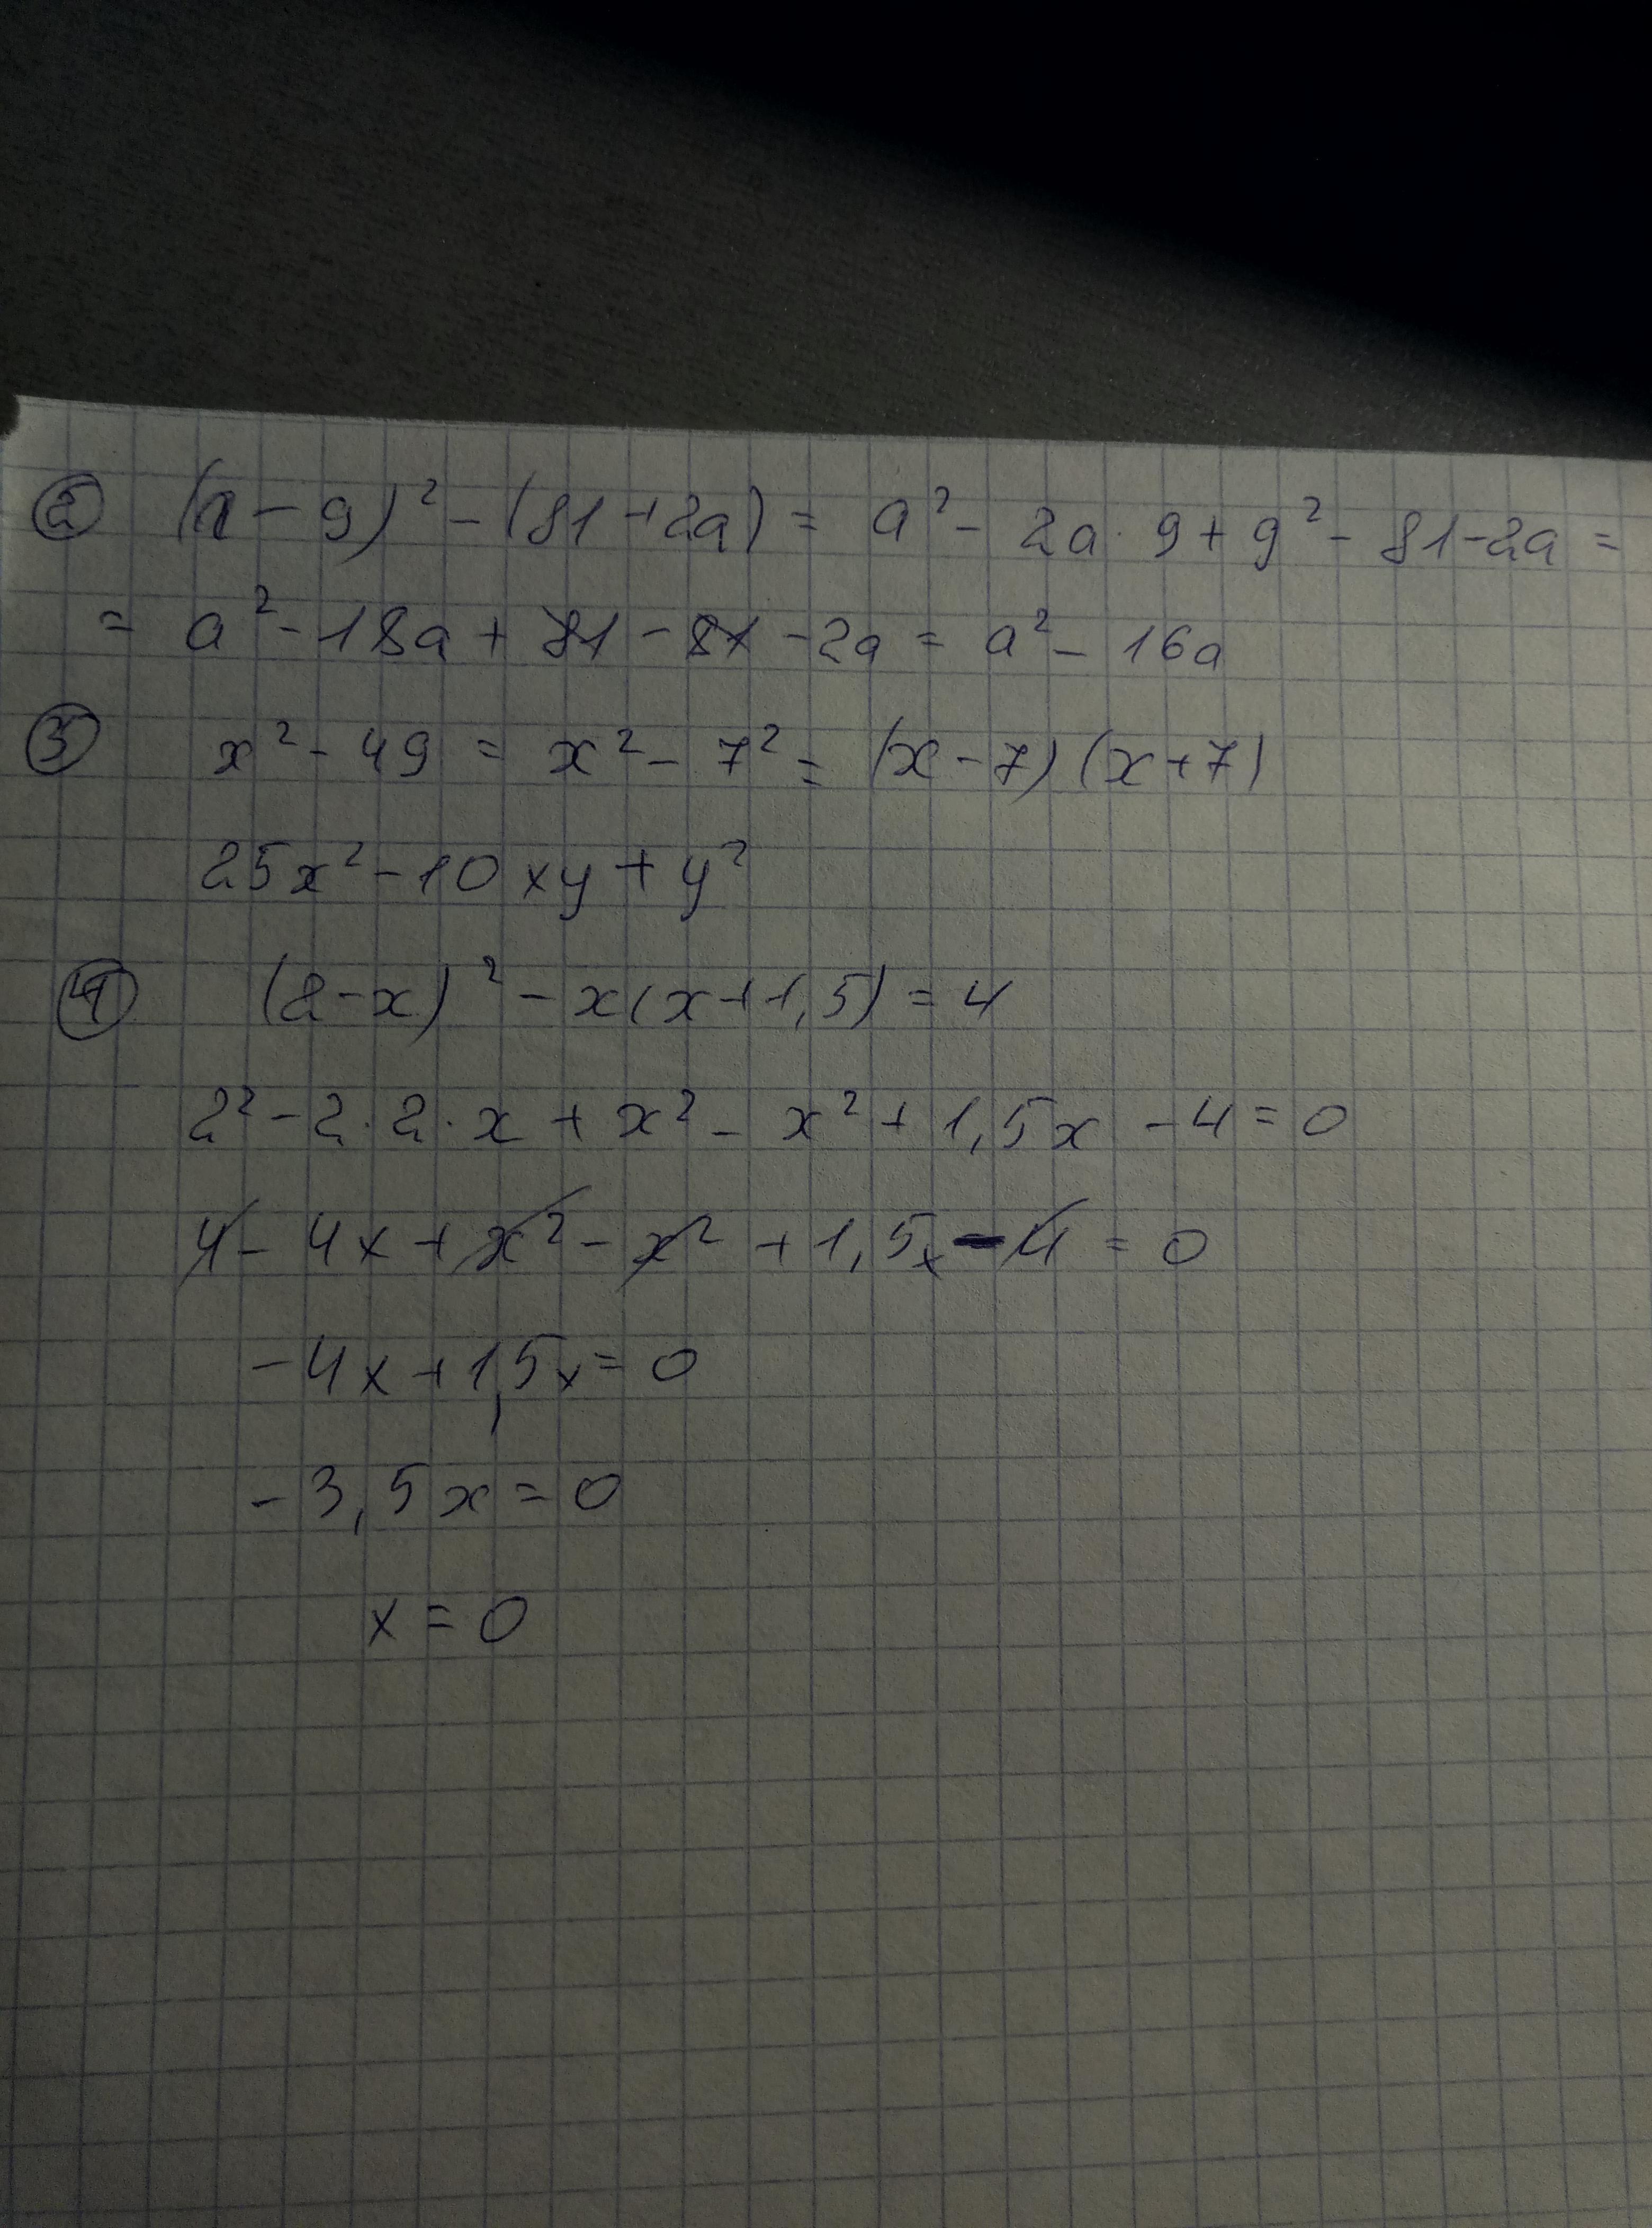 ② (a - 9)² - (81 + 2a) = a² - 2a · 9 + 9² - 81 - 2a =
= a² - 18a + 81 - 81 - 2a = a² - 16a
③ x² - 49 = x² - 7² = (x - 7) (x + 7)
25x² - 10xy + y²
④ (2 - x)² - x(x + 1,5) = 4
2² - 2 · 2 · x + x² - x² + 1,5x - 4 = 0
4 - 4x + x² - x² + 1,5x - 4 = 0
- 4x + 1,5x = 0
- 3,5x = 0
x = 0